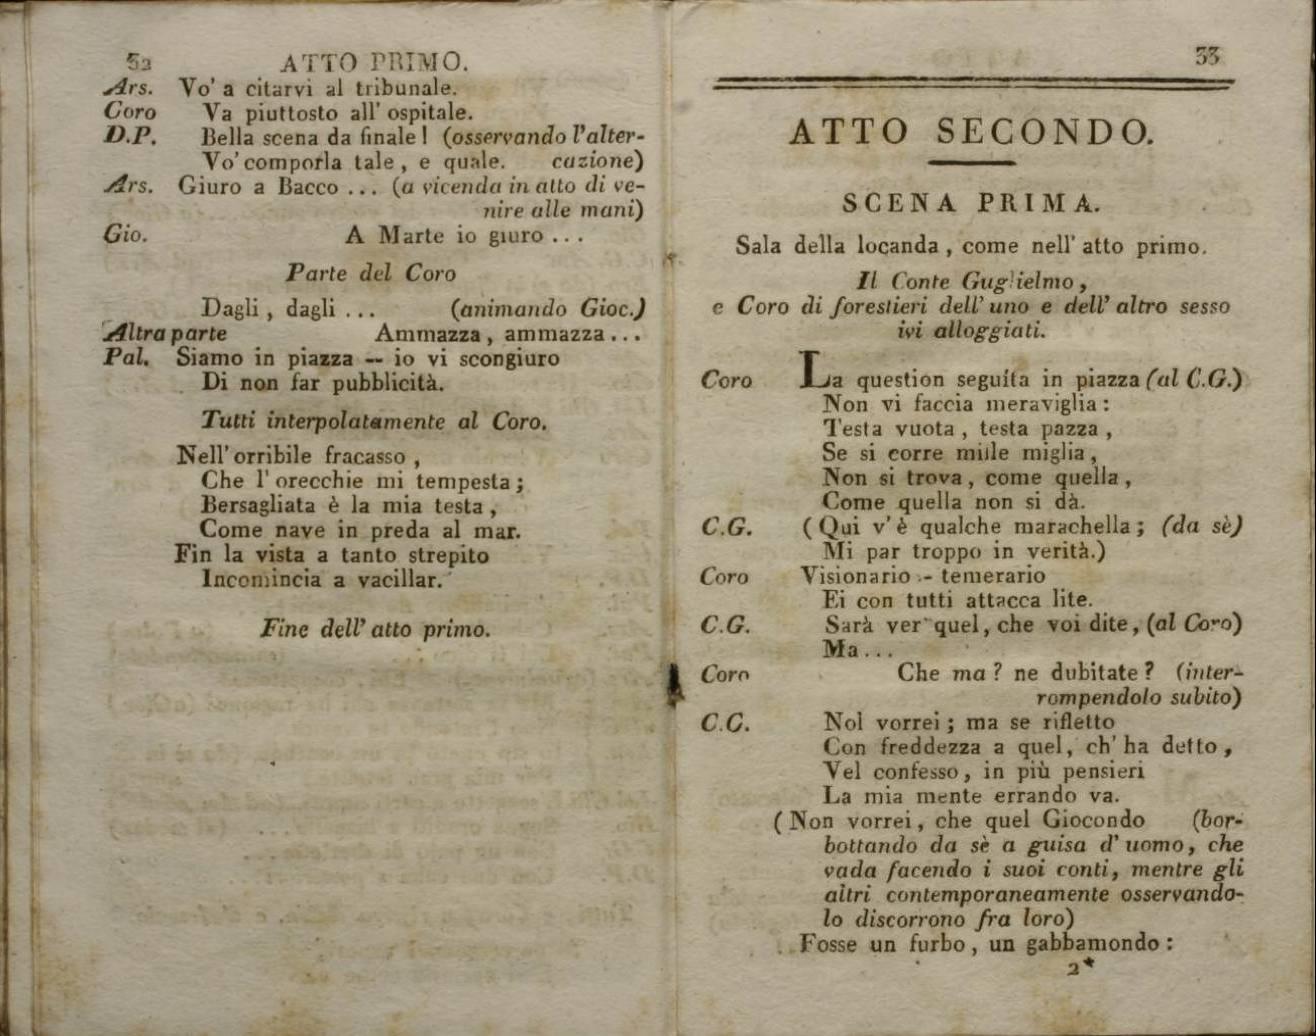 32 ATTO PRIMO.
Ars. Vo' a citarvi al tribunale.
Coro Va piuttosto all' ospitale.
D.P. Bella scena da finale! (osservando l'alter-
Vo' comporla tale, e quale. cazione)
Ars. Giuro a Bacco ... (a vicenda in atto di ve-
nire alle mani)
Gio. A Marte io giuro ...
Parte del Coro
Dagli, dagli ... (animando Gioc.)
Altra parte Ammazza, ammazza ...
Pal. Siamo in piazza -- io vi scongiuro
Di non far pubblicità.
Tutti interpolatamente al Coro.
Nell' orribile fracasso,
Che l' orecchie mi tempesta;
Bersagliata è la mia testa,
Come nave in preda al mar.
Fin la vista a tanto strepito
Incomincia a vacillar.
Fine dell' atto primo.
33
ATTO SECONDO.
SCENA PRIMA.
Sala della locanda, come nell' atto primo.
Il Conte Guglielmo,
e Coro di forestieri dell' uno e dell' altro sesso
ivi alloggiati.
Coro La question seguita in piazza (al C.G.)
Non vi faccia meraviglia:
Testa vuota, testa pazza,
Se si corre mille miglia,
Non si trova, come quella,
Come quella non si dà.
C.G. (Qui v' è qualche marachella; (da sè)
Mi par troppo in verità.)
Coro Visionario -- temerario
Ei con tutti attacca lite.
C.G. Sarà ver quel, che voi dite, (al Coro)
Ma ...
Coro Che ma? ne dubitate? (inter-
rompendolo subito)
C.G. Nol vorrei; ma se rifletto
Con freddezza a quel, ch' ha detto,
Vel confesso, in più pensieri
La mia mente errando va.
(Non vorrei, che quel Giocondo (bor-
bottando da sè a guisa d' uomo, che
vada facendo i suoi conti, mentre gli
altri contemporaneamente osservando-
lo discorrono fra loro)
Fosse un furbo, un gabbamondo:
2*